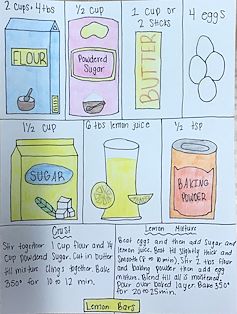 2 cups + 4 tbs
1/2 cup
1 cup or
2 sticks
4 eggs
FLOUR
Powdered
Sugar
BUTTER
1 1/2 cup
6 tbs lemon juice
1/2 tsp
SUGAR
BAKING
POWDER
Crust
Stir together 1 cup flour and
cup powdered Sugar. Cut in butter
til mixture Clings together. Bake
350° for 10 to 12 min.
Lemon Mixture
Beat eggs and then add Sugar and
lemon juice. Beat til slightly thick and
Smooth (8 to 10 min). Stir 2 tbs flour
and baking powder then add egg
mixture. Blend til all is moistened.
Pour over baked layer. Bake 350°
for 20 to 25 min.
Lemon Bars